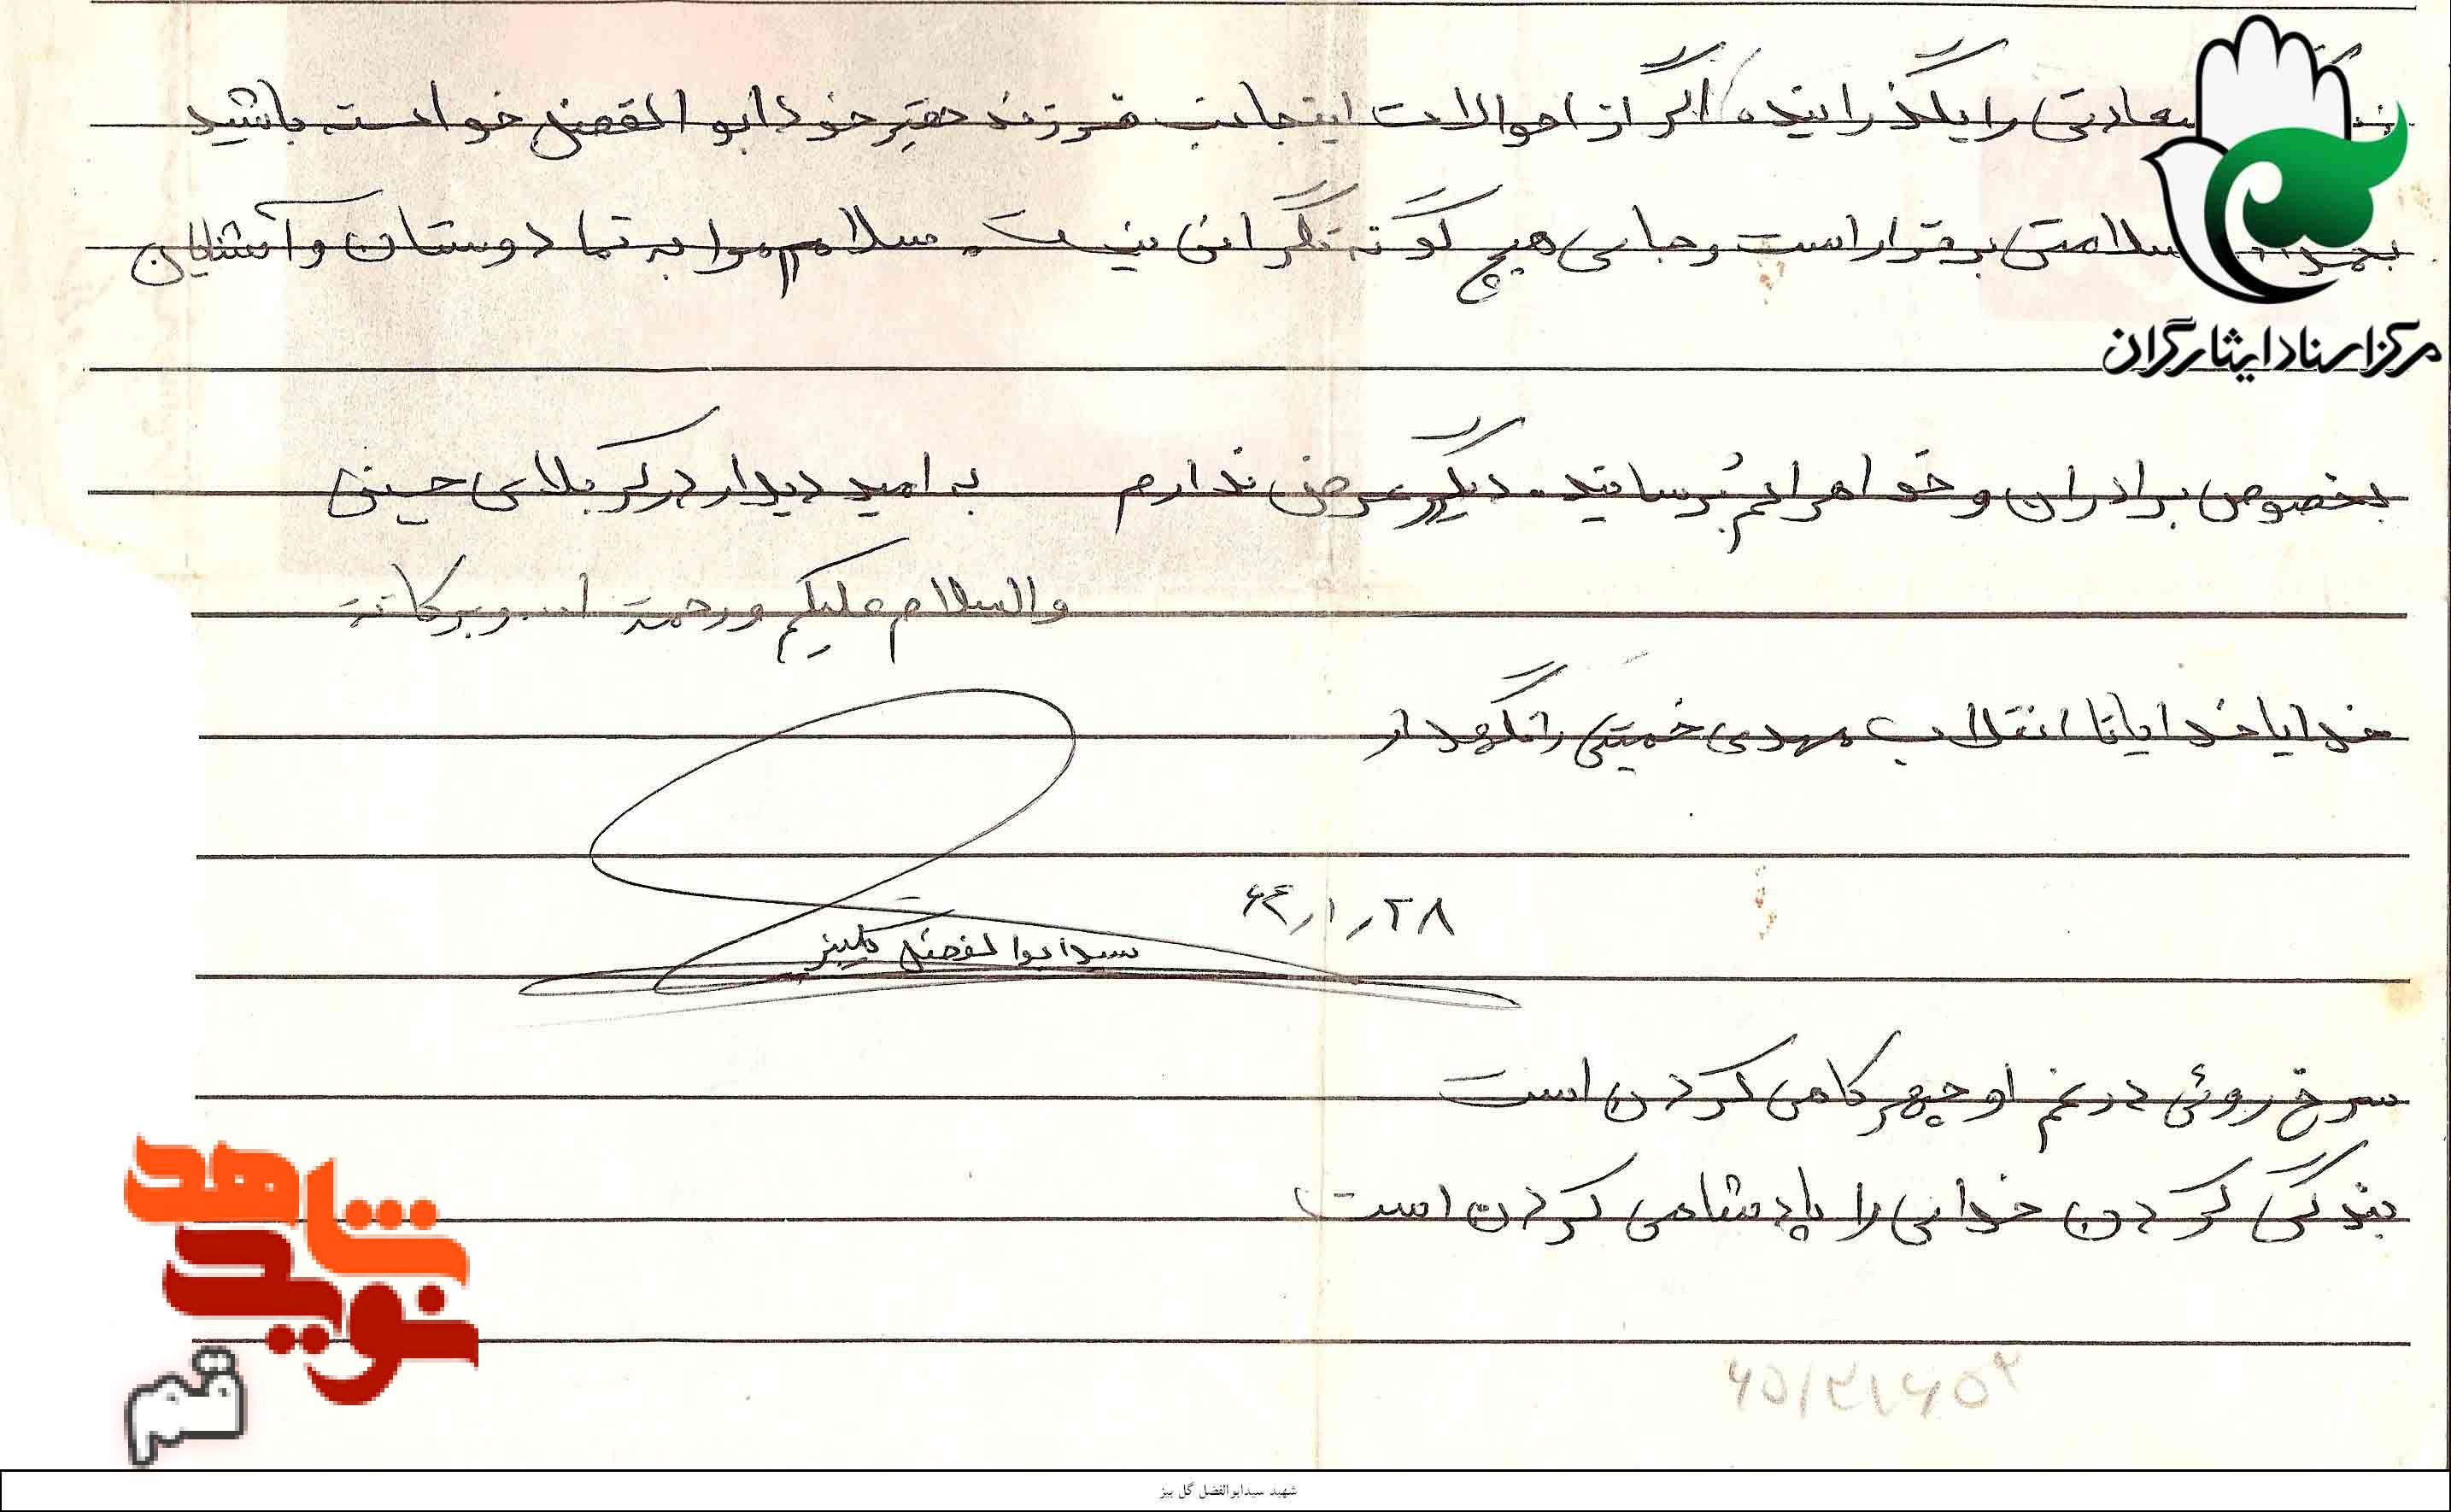 سعادتی را بگذرانید، اگر از احوالات اینجانب فرزند حقیر خود ابوالفضل خواسته باشید
سلامتی برقرار است و جای هیچ گونه نگرانی نیست. سلام مرا به تما دوستان و آشنایان
مرکز اسناد ایثارگران
بخصوص برادران و خواهرانم برسانید. دیگر عرضی ندارم به امید دیدار در کربلای حسینی
والسلام علیکم و رحمة الله و برکاته
خدایا خدایا تا انقلاب مهدی خمینی را نگهدار
۶۴٫۱٫۲۸
سید ابوالفضل گلبیز
سرخ روئی در غم او چهر کاهی کردن است
بندگی کردن خدایی را پادشاهی کردن است
شاهد
نوید
قم
شهید سیدابوالفضل گل بیز